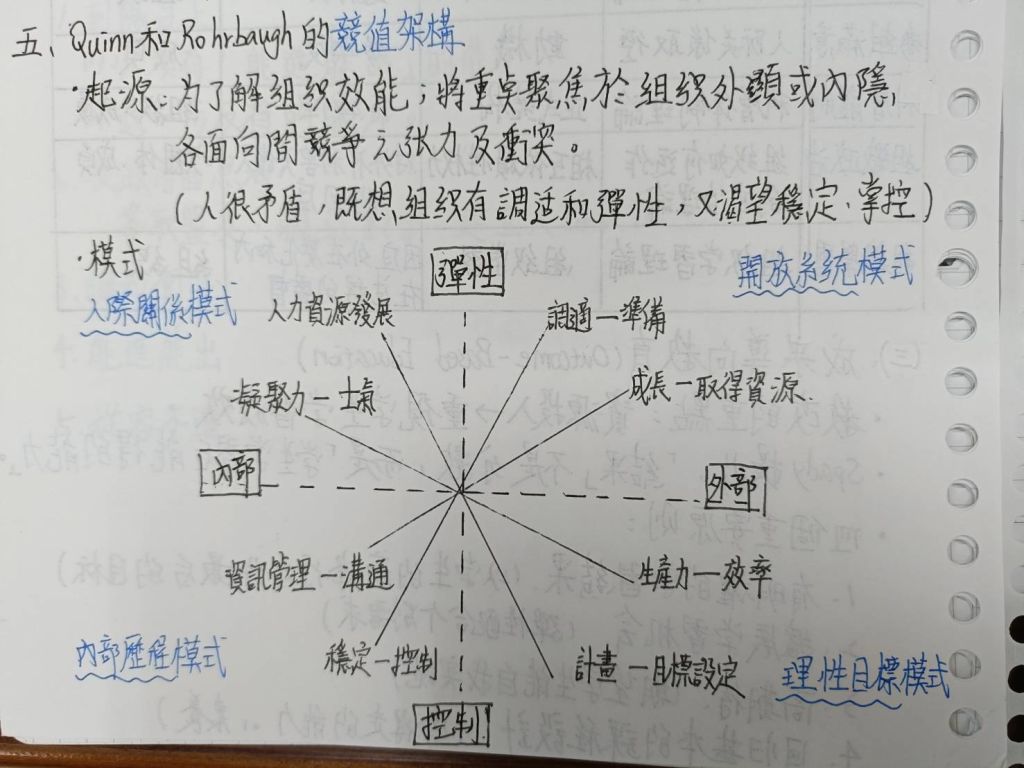 五、Quinn和Rohrbaugh的競值架構
·起源：为了解组织效能；將重点聚焦於组织外顯或內隱，
各面向間競爭元张力及衝突。
（人很矛盾，既想组织有調适和彈性，又渴望穩定、掌控）
·模式
彈性
開放系統模式
人際關係模式
人力資源發展
調適－準備
凝聚力－士氣
成長－取得資源
內部
外部
資訊管理－溝通
生産力－效率
內部歷程模式
穩定－控制
計畫－目標設定
理性目標模式
控制